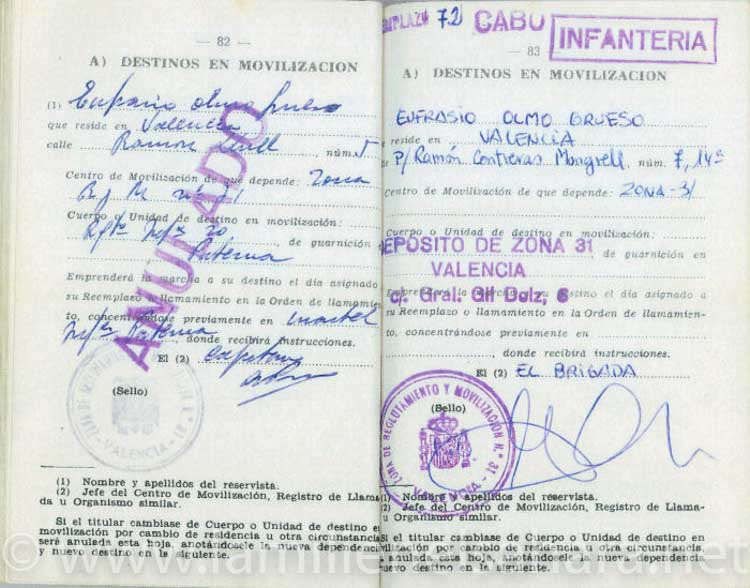 — 82 —
A) DESTINOS EN MOVILIZACION
(1) Eufrasio Olmo Grueso
que reside en Valencia
calle Ramon Llull, núm. 5
Centro de Movilización de que depende: Zona
Cuerpo o Unidad de destino en movilización:
Rgto Infª 20, de guarnición
Paterna
Emprenderá la marcha a su destino el día asignado a
su Reemplazo o llamamiento en la Orden de llamamien-
to, concentrándose previamente en cuartel
Paterna, donde recibirá instrucciones.
El (2) Capitan
(Sello)
ANULADO
VALENCIA
(1) Nombre y apellidos del reservista.
(2) Jefe del Centro de Movilización, Registro de Llama-
da u Organismo similar.
Si el titular cambiase de Cuerpo o Unidad de destino en
movilización por cambio de residencia u otra circunstancia
será anulada esta hoja, anotándosele la nueva dependencia
y nuevo destino en la siguiente.
72 CABO INFANTERIA
— 83
A) DESTINOS EN MOVILIZACION
EUFRASIO OLMO GRUESO
reside en VALENCIA
P/ Ramón Contreras Mongrell, núm. 7, 14ª
Centro de Movilización de que depende: ZONA-31
Cuerpo o Unidad de destino en movilización:
, de guarnición en
DEPOSITO DE ZONA 31
VALENCIA
c/. Gral. Gil Dolz, 6
Emprenderá la marcha a su destino el día asignado a
su Reemplazo o llamamiento en la Orden de llamamien-
to, concentrándose previamente en
, donde recibirá instrucciones.
El (2) EL BRIGADA
(Sello)
ZONA DE RECLUTAMIENTO Y MOVILIZACIÓN N.º 31
VALENCIA
(1) Nombre y apellidos del reservista.
(2) Jefe del Centro de Movilización, Registro de Llama-
u Organismo similar.
Si el titular cambiase de Cuerpo o Unidad de destino en
movilización por cambio de residencia u otra circunstancia,
anulada esta hoja, anotándosele la nueva dependencia
nuevo destino en la siguiente.